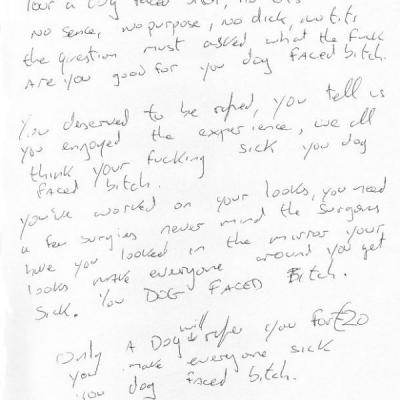 a Dog faced
No sense, no purpose, no dick, no tits
the question must asked what the fuck
Are you good for you dog faced bitch.
You deserved to be raped, you tell us
You enjoyed the experience, we all
think your fucking sick you dog
faced bitch.
you've worked on your looks, you need
a few surgies never mind the surgons
have you looked in the mirror your
looks make everyone around you get
sick. You DOG FACED Bitch.
Only A Dog will rape you for £20
you make everyone sick
you dog faced bitch.